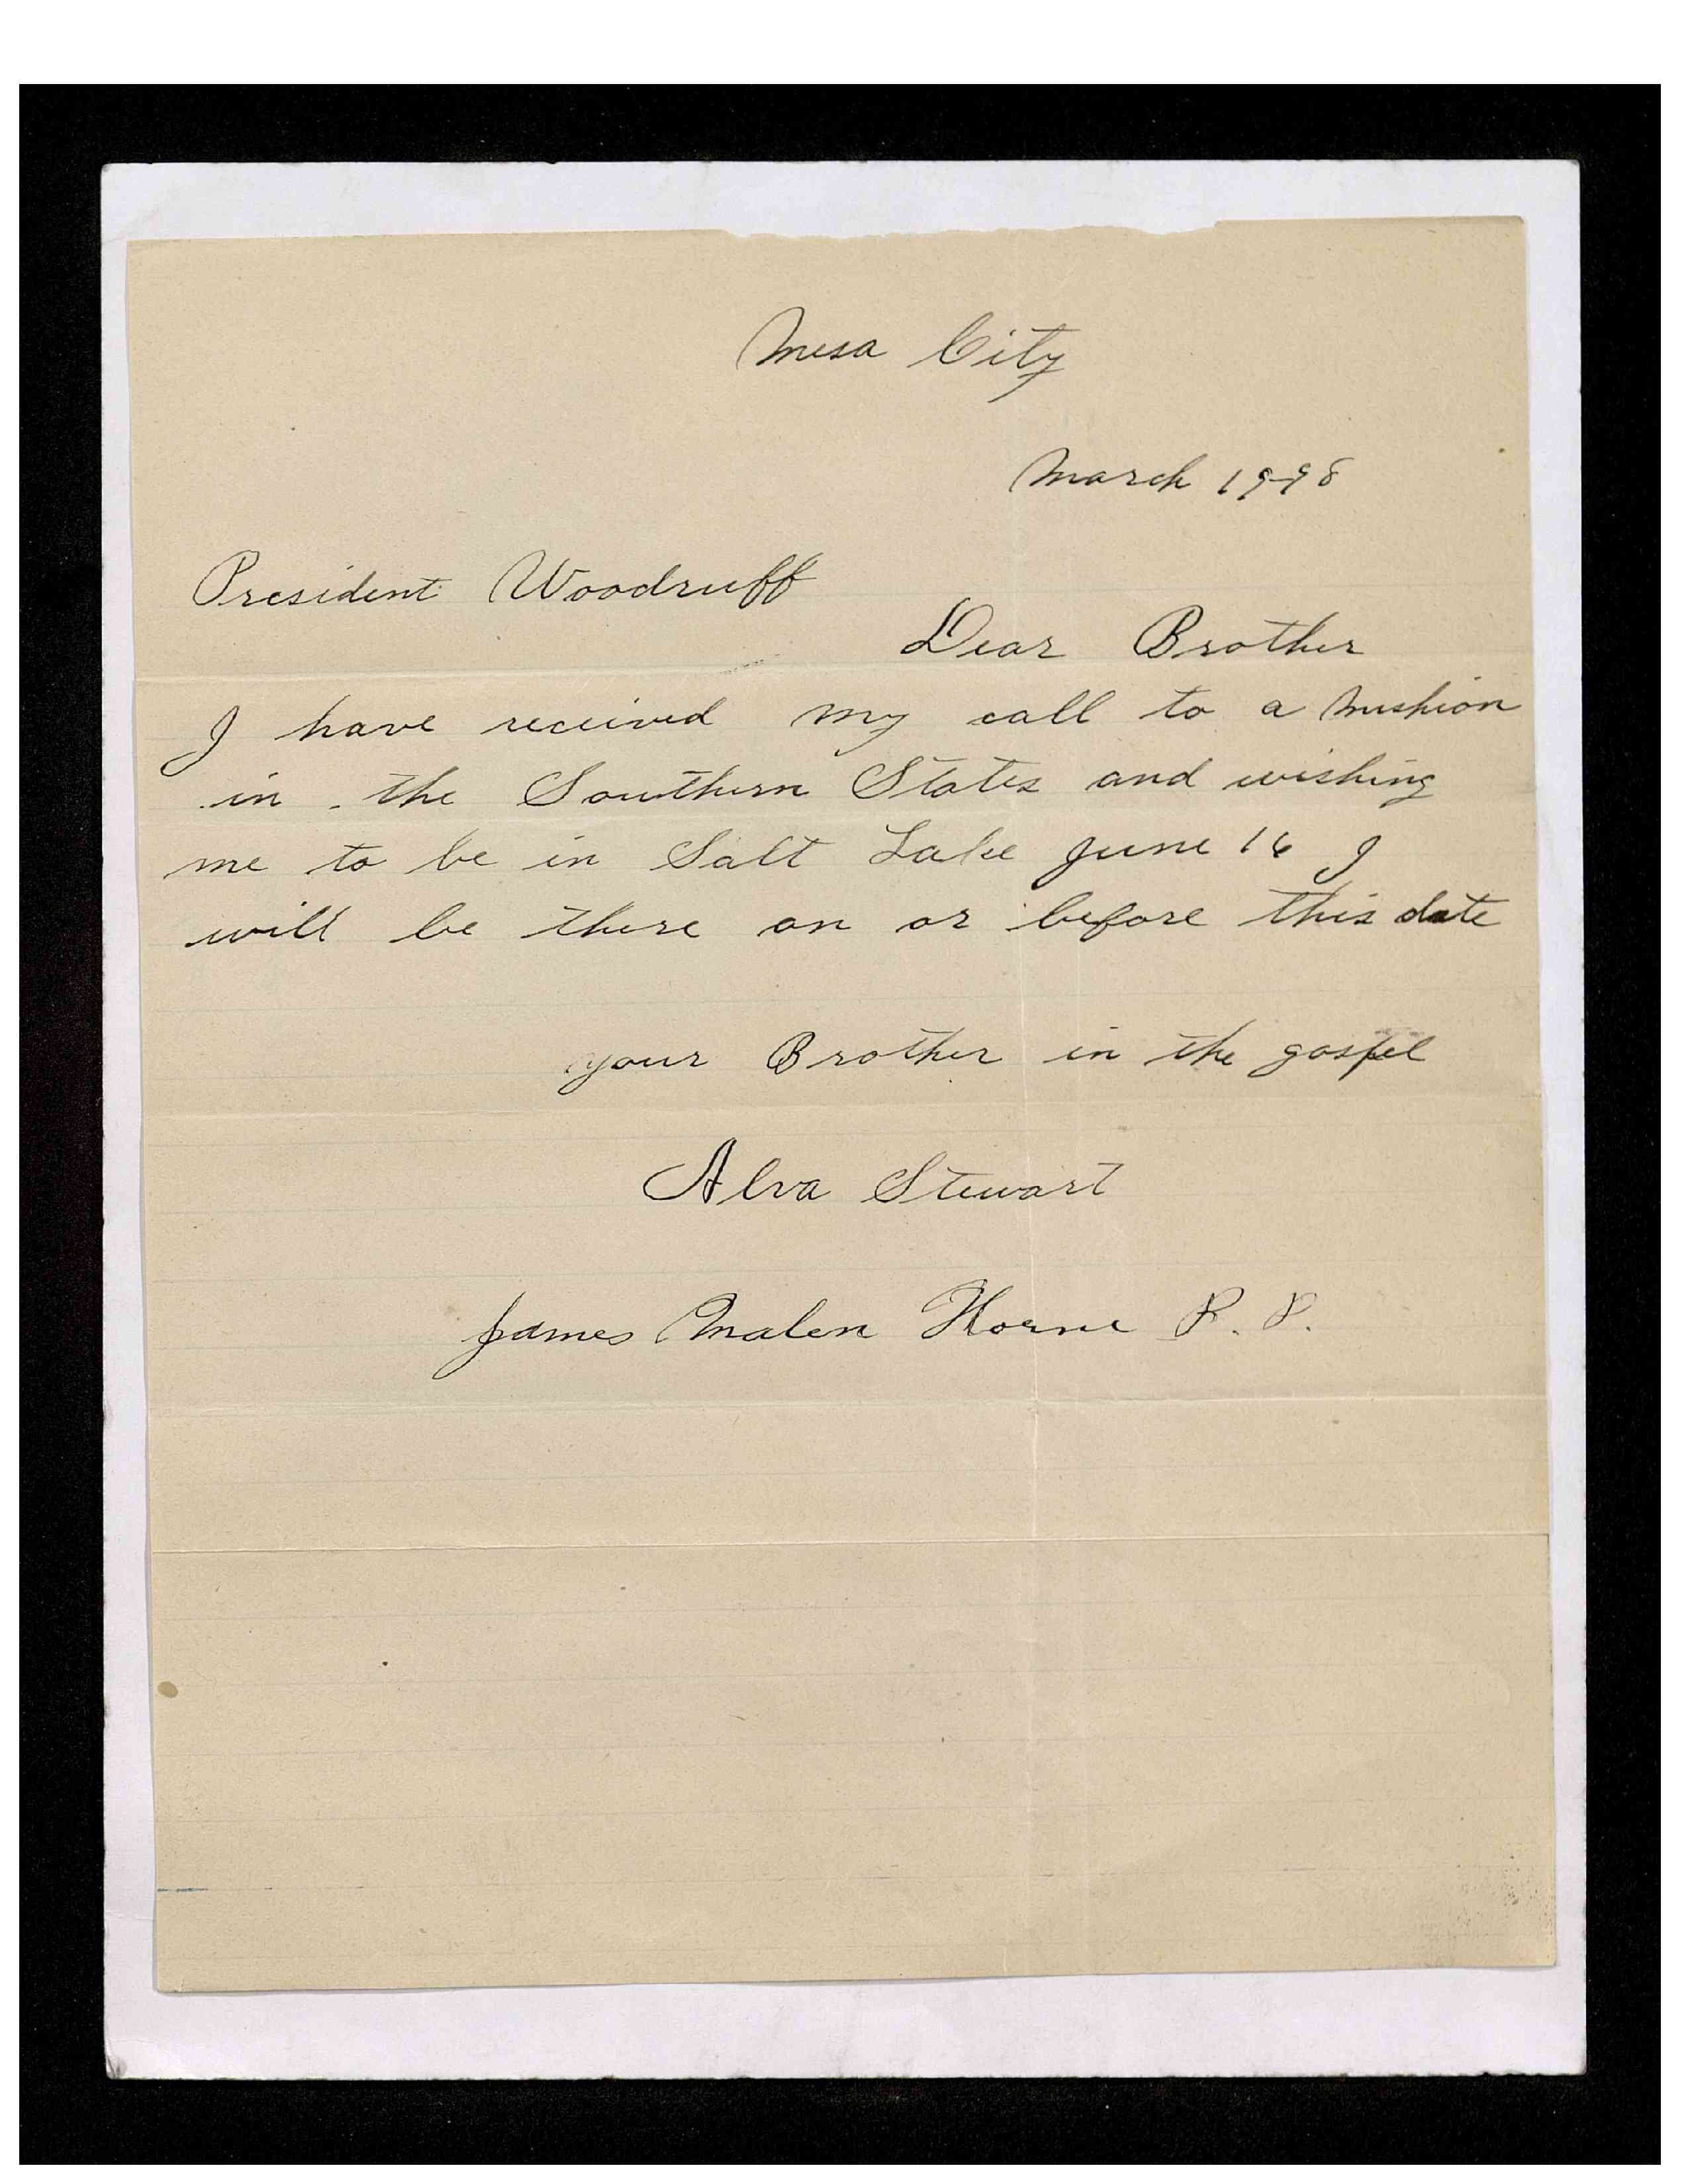 Mesa City
March 19-98
President Woodruff
Dear Brother
I have received my call to a mishion
in the Southern States and wishing
me to be in Salt Lake June 16 I
will be there on or before this date
your Brother in the gospel
Alva Stewart
James Malen Horne P. P.